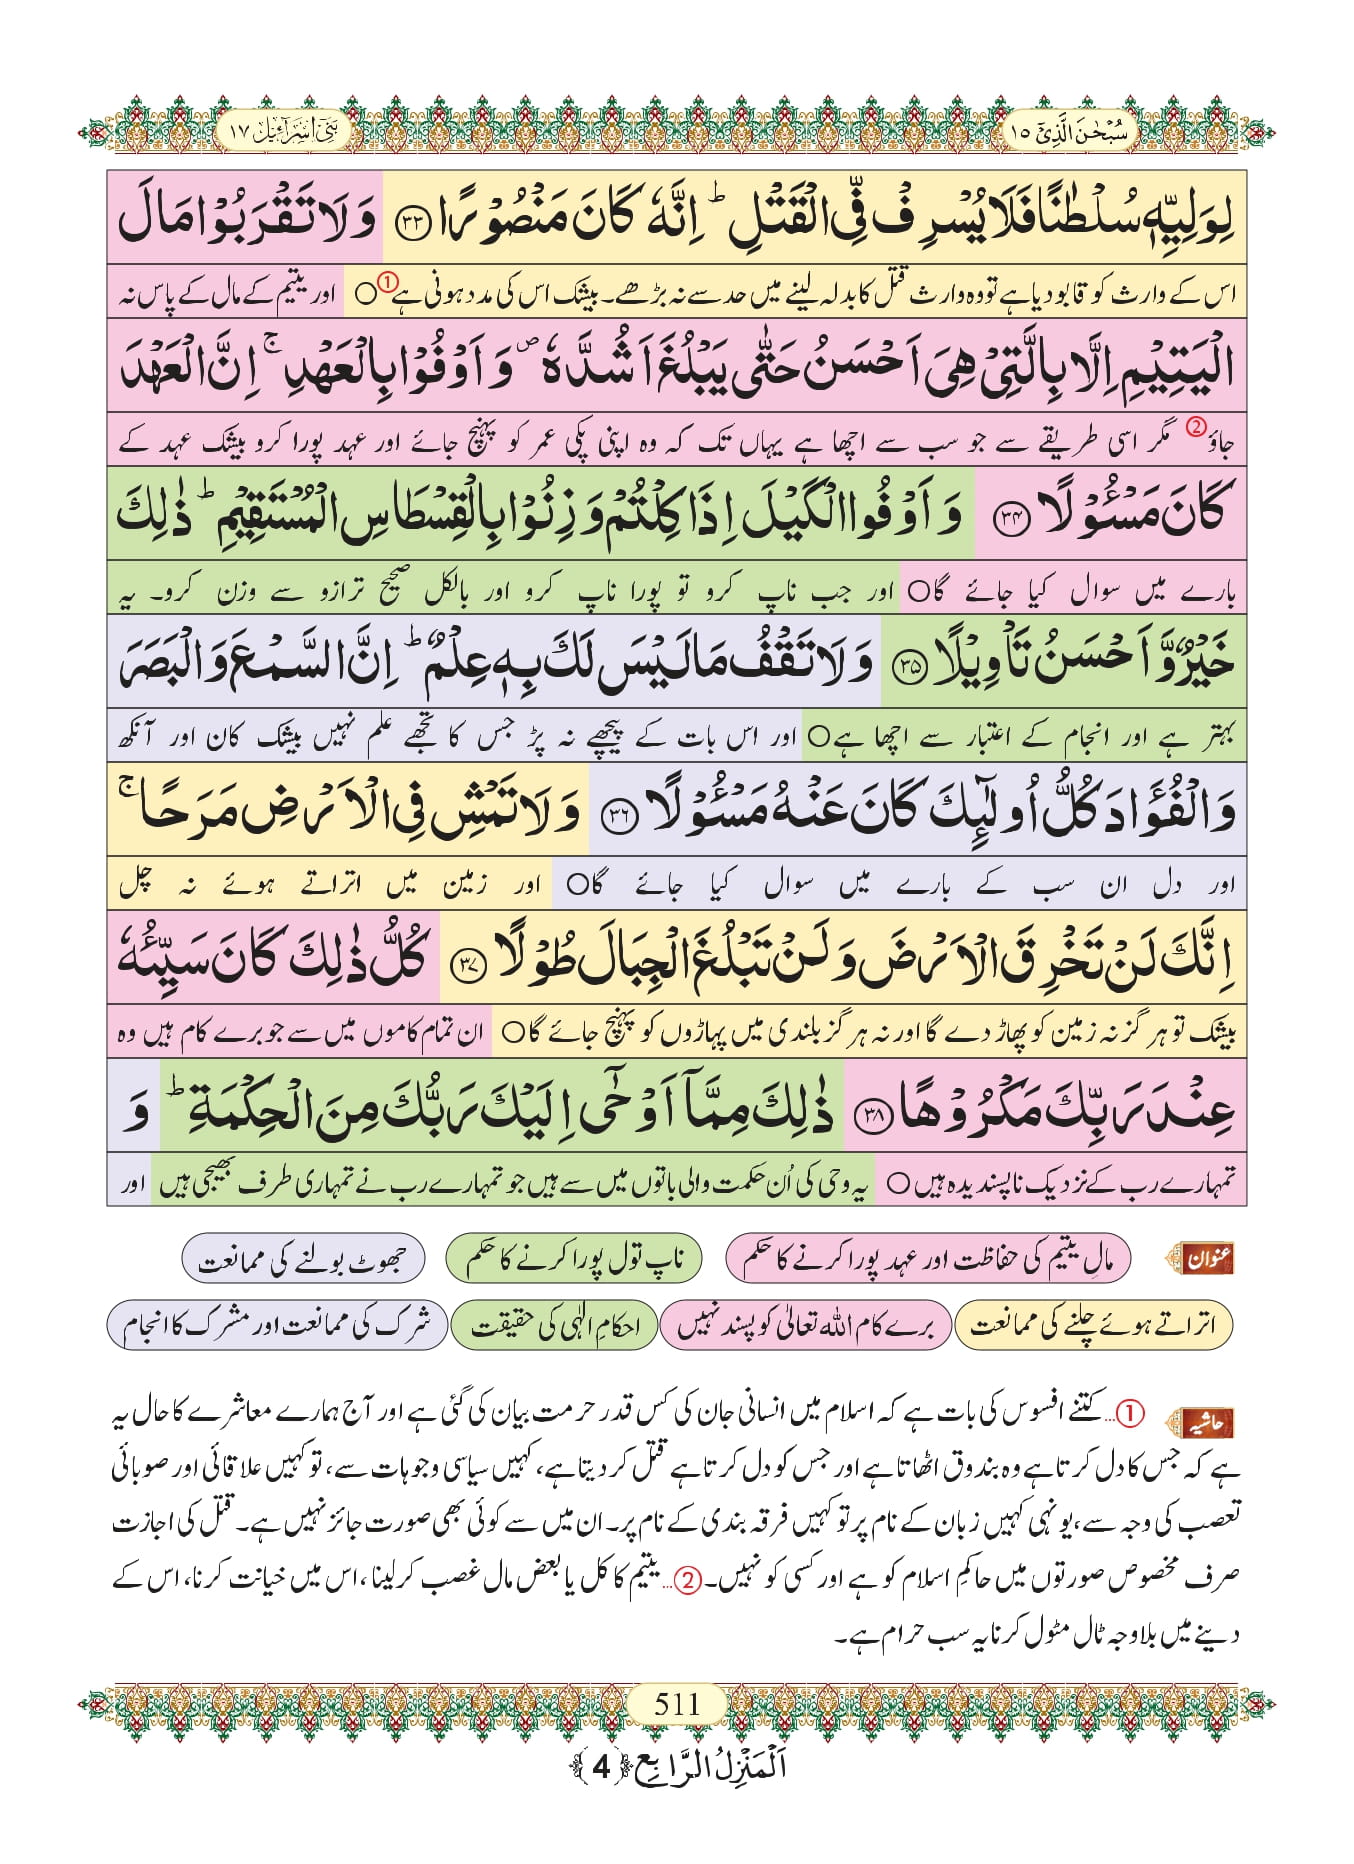 سُبْحٰنَ الَّذِیْۤ ۱۵
بَنِیْۤ اِسْرَآءِیْل ۱۷
لِوَلِیِّهٖ سُلْطٰنًا فَلَا یُسْرِفْ فِّی الْقَتْلِ ؕ اِنَّهٗ كَانَ مَنْصُوْرًا ۝۳۳ وَ لَا تَقْرَبُوْا مَالَ
اس کے وارث کو قابو دیا ہے تو وہ وارث قتل کا بدلہ لینے میں حد سے نہ بڑھے۔ بیشک اس کی مدد ہونی ہے① ○ اور یتیم کے مال کے پاس نہ
الْیَتِیْمِ اِلَّا بِالَّتِیْ هِیَ اَحْسَنُ حَتّٰى یَبْلُغَ اَشُدَّهٗ ۪ وَ اَوْفُوْا بِالْعَهْدِ ۚ اِنَّ الْعَهْدَ
جاؤ② مگر اسی طریقے سے جو سب سے اچھا ہے یہاں تک کہ وہ اپنی پکی عمر کو پہنچ جائے اور عہد پورا کرو بیشک عہد کے
كَانَ مَسْـُٔوْلًا ۝۳۴ وَ اَوْفُوا الْكَیْلَ اِذَا كِلْتُمْ وَ زِنُوْا بِالْقِسْطَاسِ الْمُسْتَقِیْمِ ؕ ذٰلِكَ
بارے میں سوال کیا جائے گا○ اور جب ناپ کرو تو پورا ناپ کرو اور بالکل صحیح ترازو سے وزن کرو۔ یہ
خَیْرٌ وَّ اَحْسَنُ تَاْوِیْلًا ۝۳۵ وَ لَا تَقْفُ مَا لَیْسَ لَكَ بِهٖ عِلْمٌ ؕ اِنَّ السَّمْعَ وَ الْبَصَرَ
بہتر ہے اور انجام کے اعتبار سے اچھا ہے○ اور اس بات کے پیچھے نہ پڑ جس کا تجھے علم نہیں بیشک کان اور آنکھ
وَ الْفُؤَادَ كُلُّ اُولٰٓىٕكَ كَانَ عَنْهُ مَسْـُٔوْلًا ۝۳۶ وَ لَا تَمْشِ فِی الْاَرْضِ مَرَحًا ۚ
اور دل ان سب کے بارے میں سوال کیا جائے گا○ اور زمین میں اتراتے ہوئے نہ چل
اِنَّكَ لَنْ تَخْرِقَ الْاَرْضَ وَ لَنْ تَبْلُغَ الْجِبَالَ طُوْلًا ۝۳۷ كُلُّ ذٰلِكَ كَانَ سَیِّئُهٗ
بیشک تو ہر گز نہ زمین کو پھاڑ دے گا اور نہ ہر گز بلندی میں پہاڑوں کو پہنچ جائے گا○ ان تمام کاموں میں سے جو برے کام ہیں وہ
عِنْدَ رَبِّكَ مَكْرُوْهًا ۝۳۸ ذٰلِكَ مِمَّاۤ اَوْحٰۤى اِلَیْكَ رَبُّكَ مِنَ الْحِكْمَةِ ؕ وَ
تمہارے رب کے نزدیک ناپسندیدہ ہیں ○ یہ وحی کی اُن حکمت والی باتوں میں سے ہیں جو تمہارے رب نے تمہاری طرف بھیجی ہیں اور
عنوان مالِ یتیم کی حفاظت اور عہد پورا کرنے کا حکم ناپ تول پورا کرنے کا حکم جھوٹ بولنے کی ممانعت
اتراتے ہوئے چلنے کی ممانعت برے کام اللہ تعالیٰ کو پسند نہیں احکامِ الٰہی کی حقیقت شرک کی ممانعت اور مشرک کا انجام
حاشیہ ①... کتنے افسوس کی بات ہے کہ اسلام میں انسانی جان کی کس قدر حرمت بیان کی گئی ہے اور آج ہمارے معاشرے کا حال یہ
ہے کہ جس کا دل کرتا ہے وہ بندوق اٹھاتا ہے اور جس کو دل کرتا ہے قتل کر دیتا ہے، کہیں سیاسی وجوہات سے، تو کہیں علاقائی اور صوبائی
تعصب کی وجہ سے، یونہی کہیں زبان کے نام پر تو کہیں فرقہ بندی کے نام پر۔ ان میں سے کوئی بھی صورت جائز نہیں ہے۔ قتل کی اجازت
صرف مخصوص صورتوں میں حاکمِ اسلام کو ہے اور کسی کو نہیں۔ ②... یتیم کا کل یا بعض مال غصب کر لینا، اس میں خیانت کرنا، اس کے
دینے میں بلاوجہ ٹال مٹول کرنا یہ سب حرام ہے۔
511
اَلْمَنْزِلُ الرَّابِع ﴿4﴾